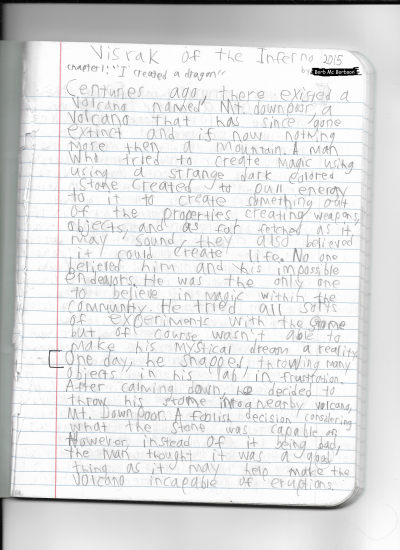 Visrak of the Inferno 2015
chapter1:"I created a dragon"
by Barb Mc Barbson
Centuries ago, there existed a
volcano named, Mt. downpoor, a
volcano that has since gone
extinct and if now nothing
more then a mountain. A man
who tried to create magic using
using a strange dark colored
stone created to pull energy
to it to create something out
of the properties, creating weapons,
objects, and as far fetched as it
may sound, they also believed
it could create life. No one
believed him and his impossible
endeavors. He was the only one
to believe in magic within the
community. He tried all sorts
of experiments with the stone
but of course wasn't able to
make his mystical dream a reality.
One day, he snapped, throwing many
objects in his lab in frustration.
After calming down, he decided to
throw his stome into a nearby volcano,
Mt. Downpoor. A foolist decision considering
what the stone was capable of
However, instead of it being bad,
the man thought it was a good
thing as it may help make the
volcano incapable of eruptions.